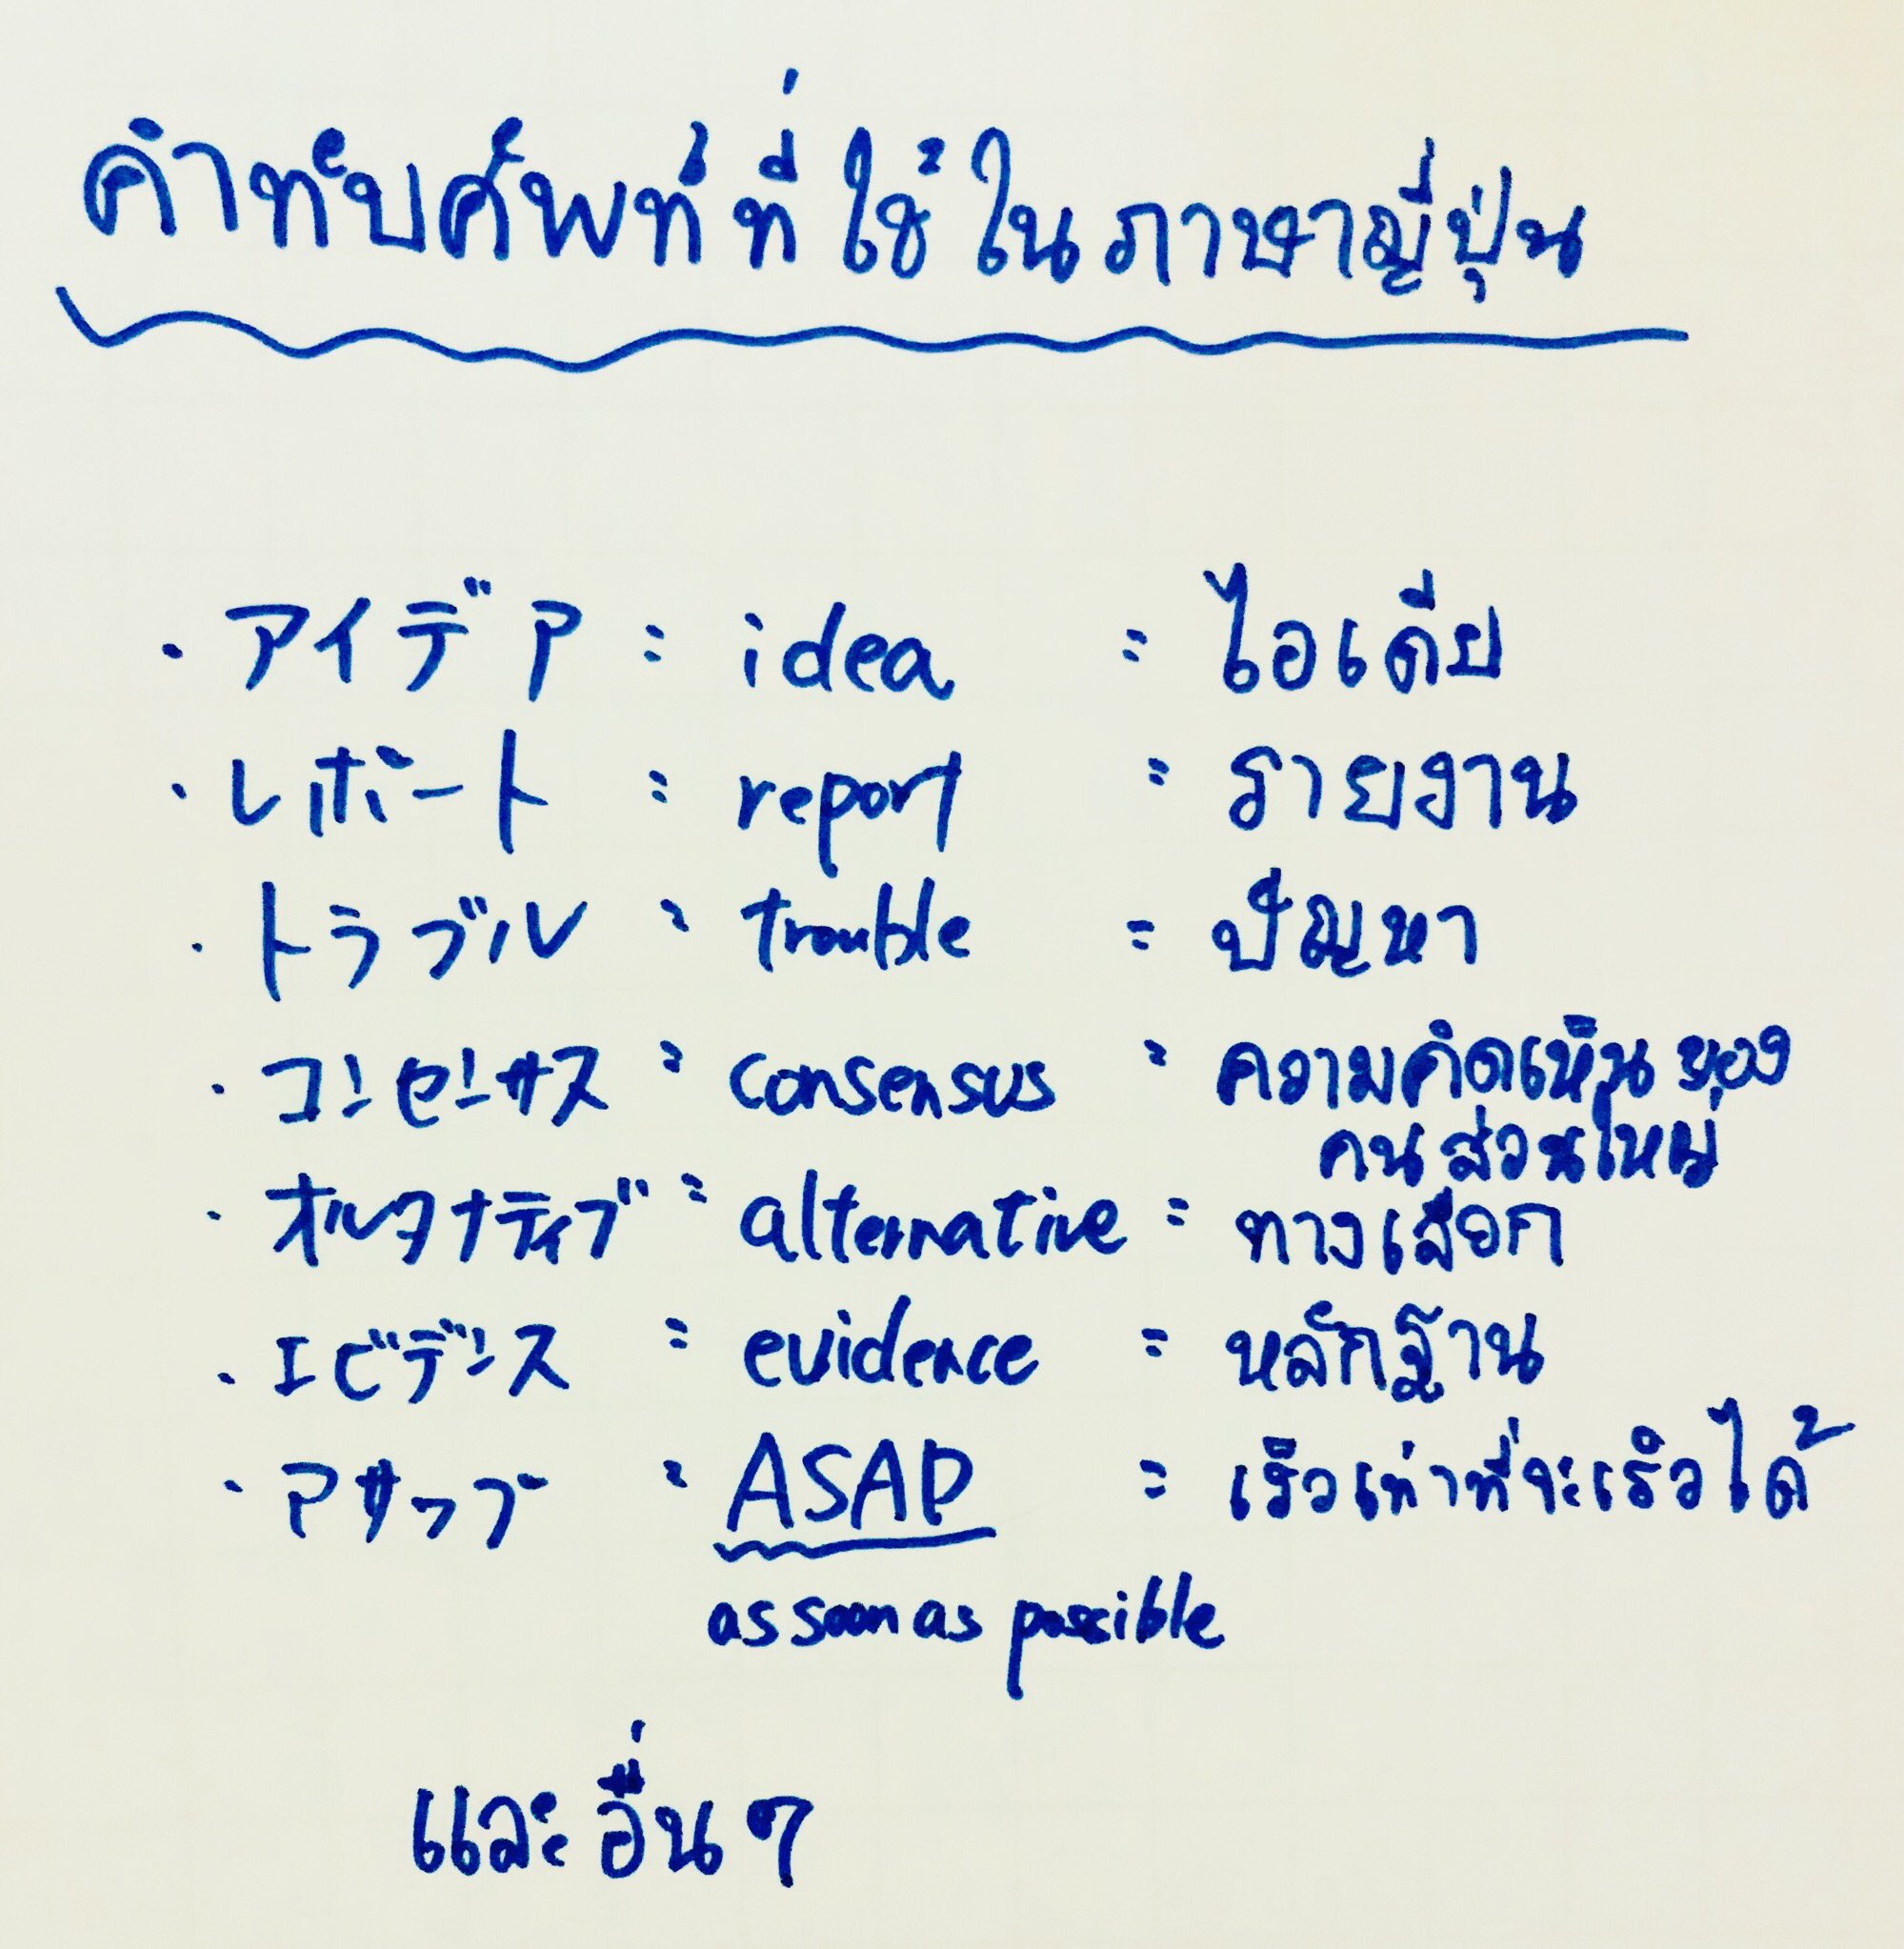 คำทับศัพท์ที่ใช้ในภาษาญี่ปุ่น
・アイデア : idea = ไอเดีย
・レポート : report = รายงาน
・トラブル : trouble = ปัญหา
・コンセンサス : consensus = ความคิดเห็นของ
คนส่วนใหญ่
・オルタナティブ : alternative = ทางเลือก
・エビデンス : evidence = หลักฐาน
・アサップ : ASAP = เร็วเท่าที่จะเร็วได้
as soon as possible
และอื่นๆ